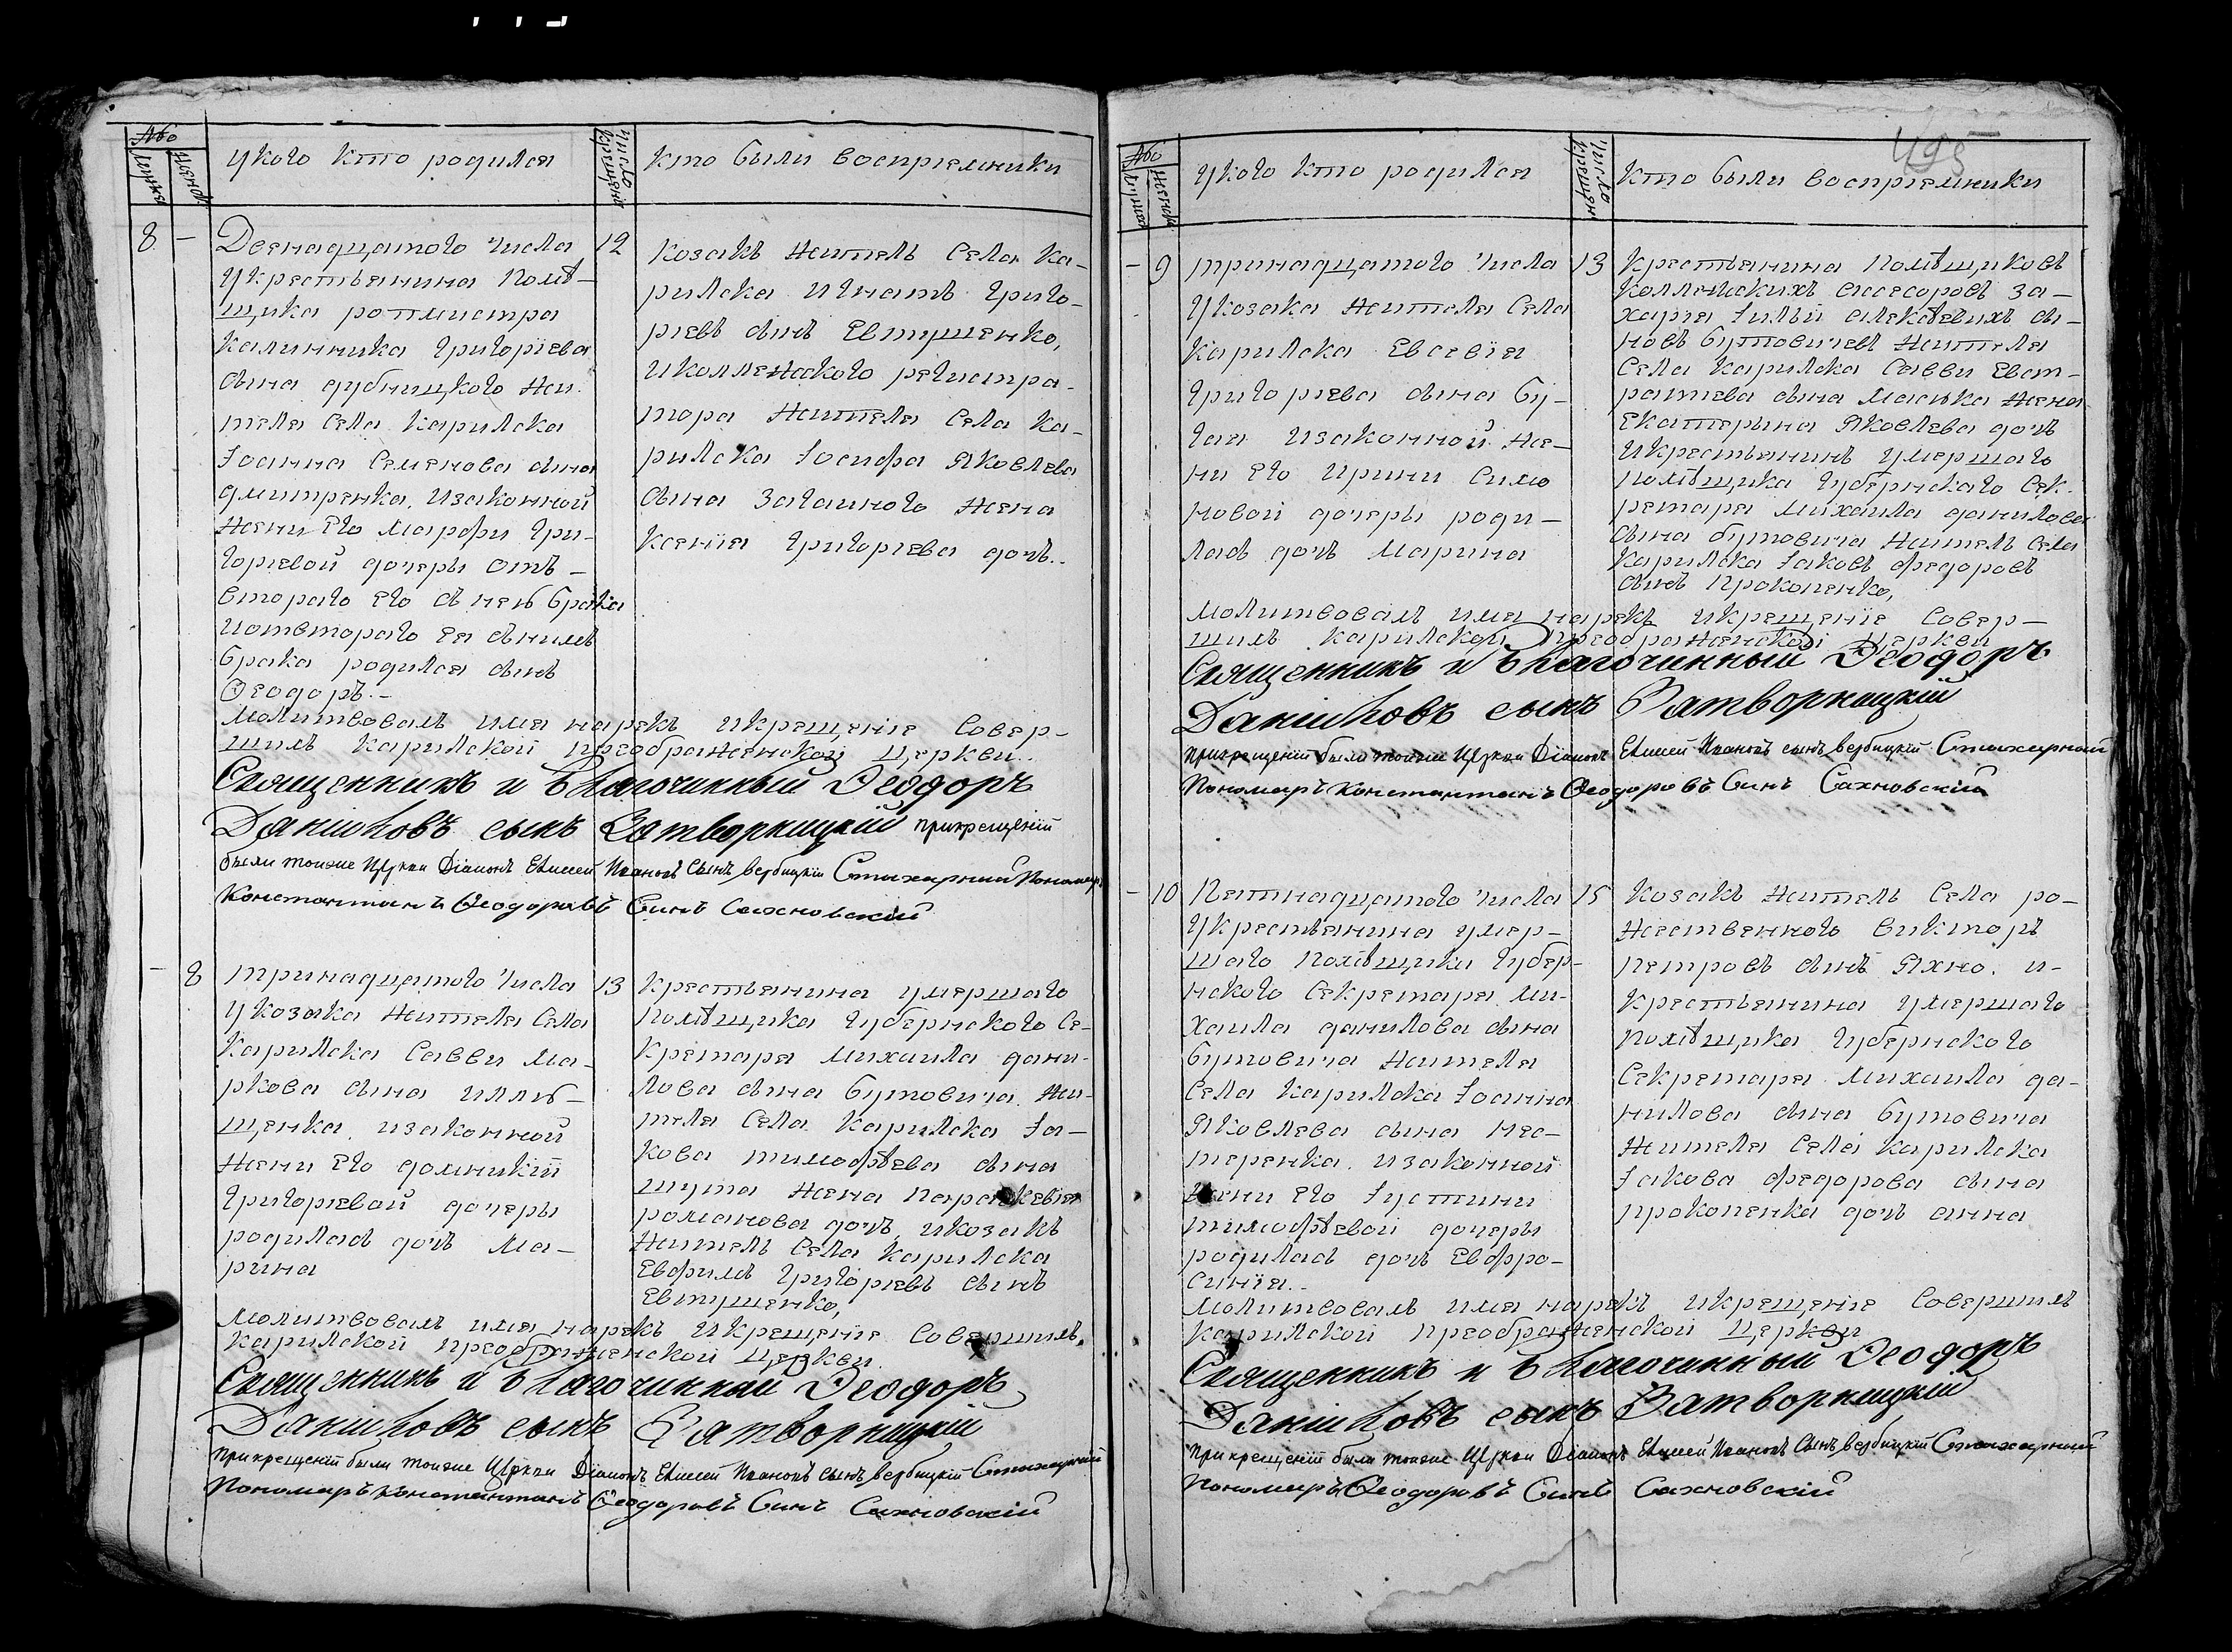 495
У кого кто родился
Число крещения
Кто были восприемники
8 — Двенадцатого числа 12
у крестьянина помѣ-
щика ротмистра
Калинника Григорїева
сына Дубницкого жи-
теля села Карилска
Іоанна Семенова сына
Дмитренка, и законной
жени его Марфи Гри-
горїевой дочеры отъ
втораго его съ нею брака
и отвтораго ея снимъ
брака родился сынъ
Ѳеодоръ.-
Козакъ житель села Ка-
рилска Игнатъ Григо-
рїевъ сынъ Евтушенко,
и коллежского регистра-
тора жителя села Ка-
рилска Іосифа Яковлева
сына жена
Ксенїя Григорїева дочь..
Молитвовалъ имя нарекъ и крещенїе совер-
шилъ Карилской Преображенской церкви..
Священникъ и Благочинный Ѳеодоръ
Данїиловъ сынъ Затворницкїй При крещенїи
были тоиже Церкви Дїаконъ Елисей Ивановъ сынъ вербицкїй Стихарный Пономарь
Константинъ Ѳеодоровъ Синъ Сахновскїй
— 8 тринадцатого числа 13
у козака жителя села
Карилска Савви Ма-
ркова сына Иллѣ-
щенка, и законной
жени его Домникїи
Григорїевой дочеры
родилась дочь Ма-
рина
крестьянина умершаго
помѣщика губернского се-
кретаря Михаила Дани-
лова сына Бутовича жи-
теля села Карилска Іа-
кова Тимофѣева сына
Шута жена Параскевїя
Романова дочь, и козакъ
житель села Карилска
Евфимъ Григорїевъ сынъ
Евтушенко,
Молитвовалъ имя нарекъ и крещенїе совершилъ,
Карилской Преображенской церкви
Священникъ и Благочинный Ѳеодоръ
Данїиловъ сынъ Затворницкїй
При крещенїи были тоиже Церкви Дїаконъ Елисей Ивановъ сынъ вербицкїй Стихарный
Пономаръ Константинъ Ѳеодоровъ Синъ Сахновскїй
У кого кто родился
Число крещен
Кто были восприемники
— 9 тринадцатого числа 13
у козака жителя села
Карилска Евсевїя
Григорїева сына Бу-
гая и законной же-
ни его Ирини Симо
новой дочеры роди-
лась дочь Марина
Крестьянина помѣщиковъ
коллежскихъ ассесоровъ За-
харїя Алексѣевихъ сы-
новъ Бутовичевъ жителя
села Карилска Савви Евст-
ратїева сына жена
Екатерына Яковлева дочь
и крестьянинъ умершаго
помѣщика губернскаго сек-
ретаря Михаила Данилова
сына Бутовича житель села
Карилска Іаковъ Федоровъ
сынъ Прокопенко,
Молитвовалъ имя нарекъ и крещенїе совер-
шилъ Карилской Преображенской церкви
Священникъ и Благочинный Ѳеодоръ
Данїиловъ сынъ Затворницкїй
При крещенїи были тоиже Церкви Дїаконъ Елисей Ивановъ сынъ вербицкїй Стихарный
Пономаръ Константинъ Ѳеодоровъ Синъ Сахновскїй
— 10 Пятнадцатого числа 15
у крестьянина умер-
шаго помѣщика губер-
нского секретаря Ми-
хаила Данилова сына
Бутовича жителя
села Карилска Іоанна
Яковлева сына Нес-
теренка, и законной
жени его Іустини
Тимофѣевой дочеры
родилась дочь Евфро-
синїя.-
Козакъ житель села Ро-
жественного Викторъ
Петровъ сынъ Яхно, и-
крестьянина умершаго
помѣщика губернского
секретаря Михаила Да-
нилова сына Бутовича
жителя села Карилска
Іакова Федорова сына
Прокопенка дочь Анна
Молитвовалъ имя нарекъ и крещенїе совершилъ
Карилской Преображенской церкви
Священникъ и Благочинный Ѳеодоръ
Данїиловъ сынъ Затворницкїй
При крещенїи были тоиже Церкви Дїаконъ Елисей Ивановъ Сынъ вербицкїй Стихарный
Пономаръ Ѳеодоровъ Синъ Сахновскїй